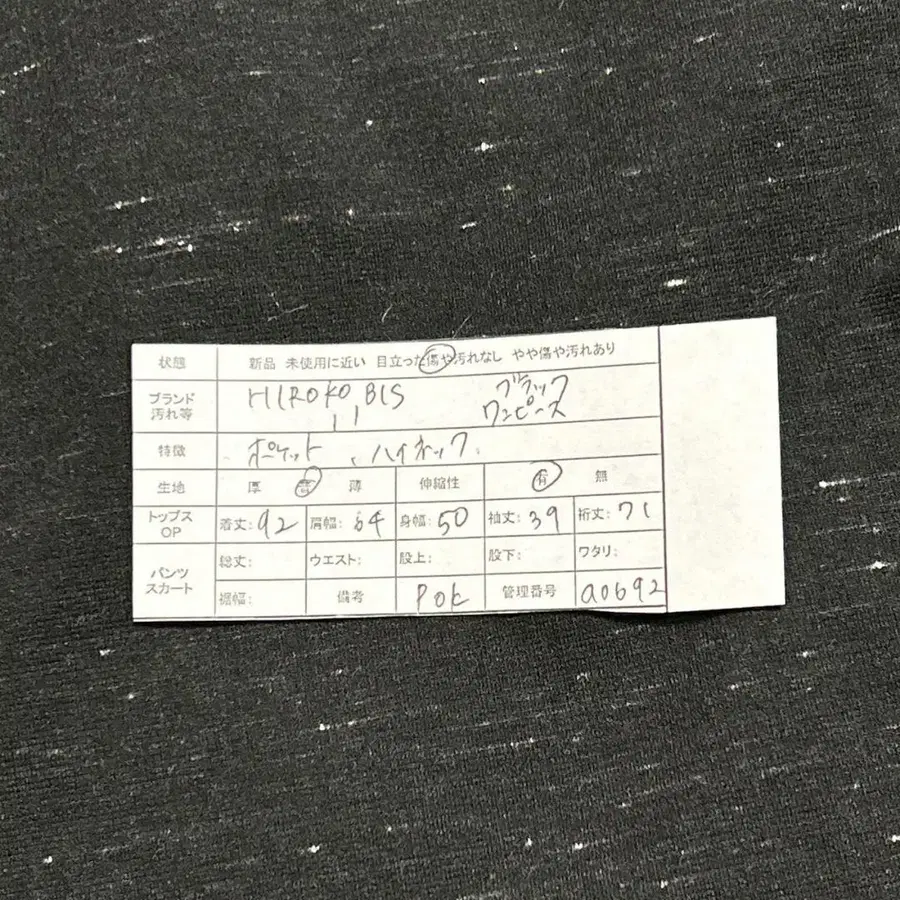 状態 新品 未使用に近い 目立った傷や汚れなし やや傷や汚れあり
ブランド 汚れ等 HIROKO BIS ブラック
11 ワンピース
特徴 ポケット、ハイネック、
生地 厚 普 薄 伸縮性 有 無
トップス OP 着丈:92 肩幅:64 身幅:50 袖丈:39 裄丈:71
パンツ スカート 総丈: ウエスト: 股上: 股下: ワタリ:
裾幅: 備考 POK 管理番号 a0692